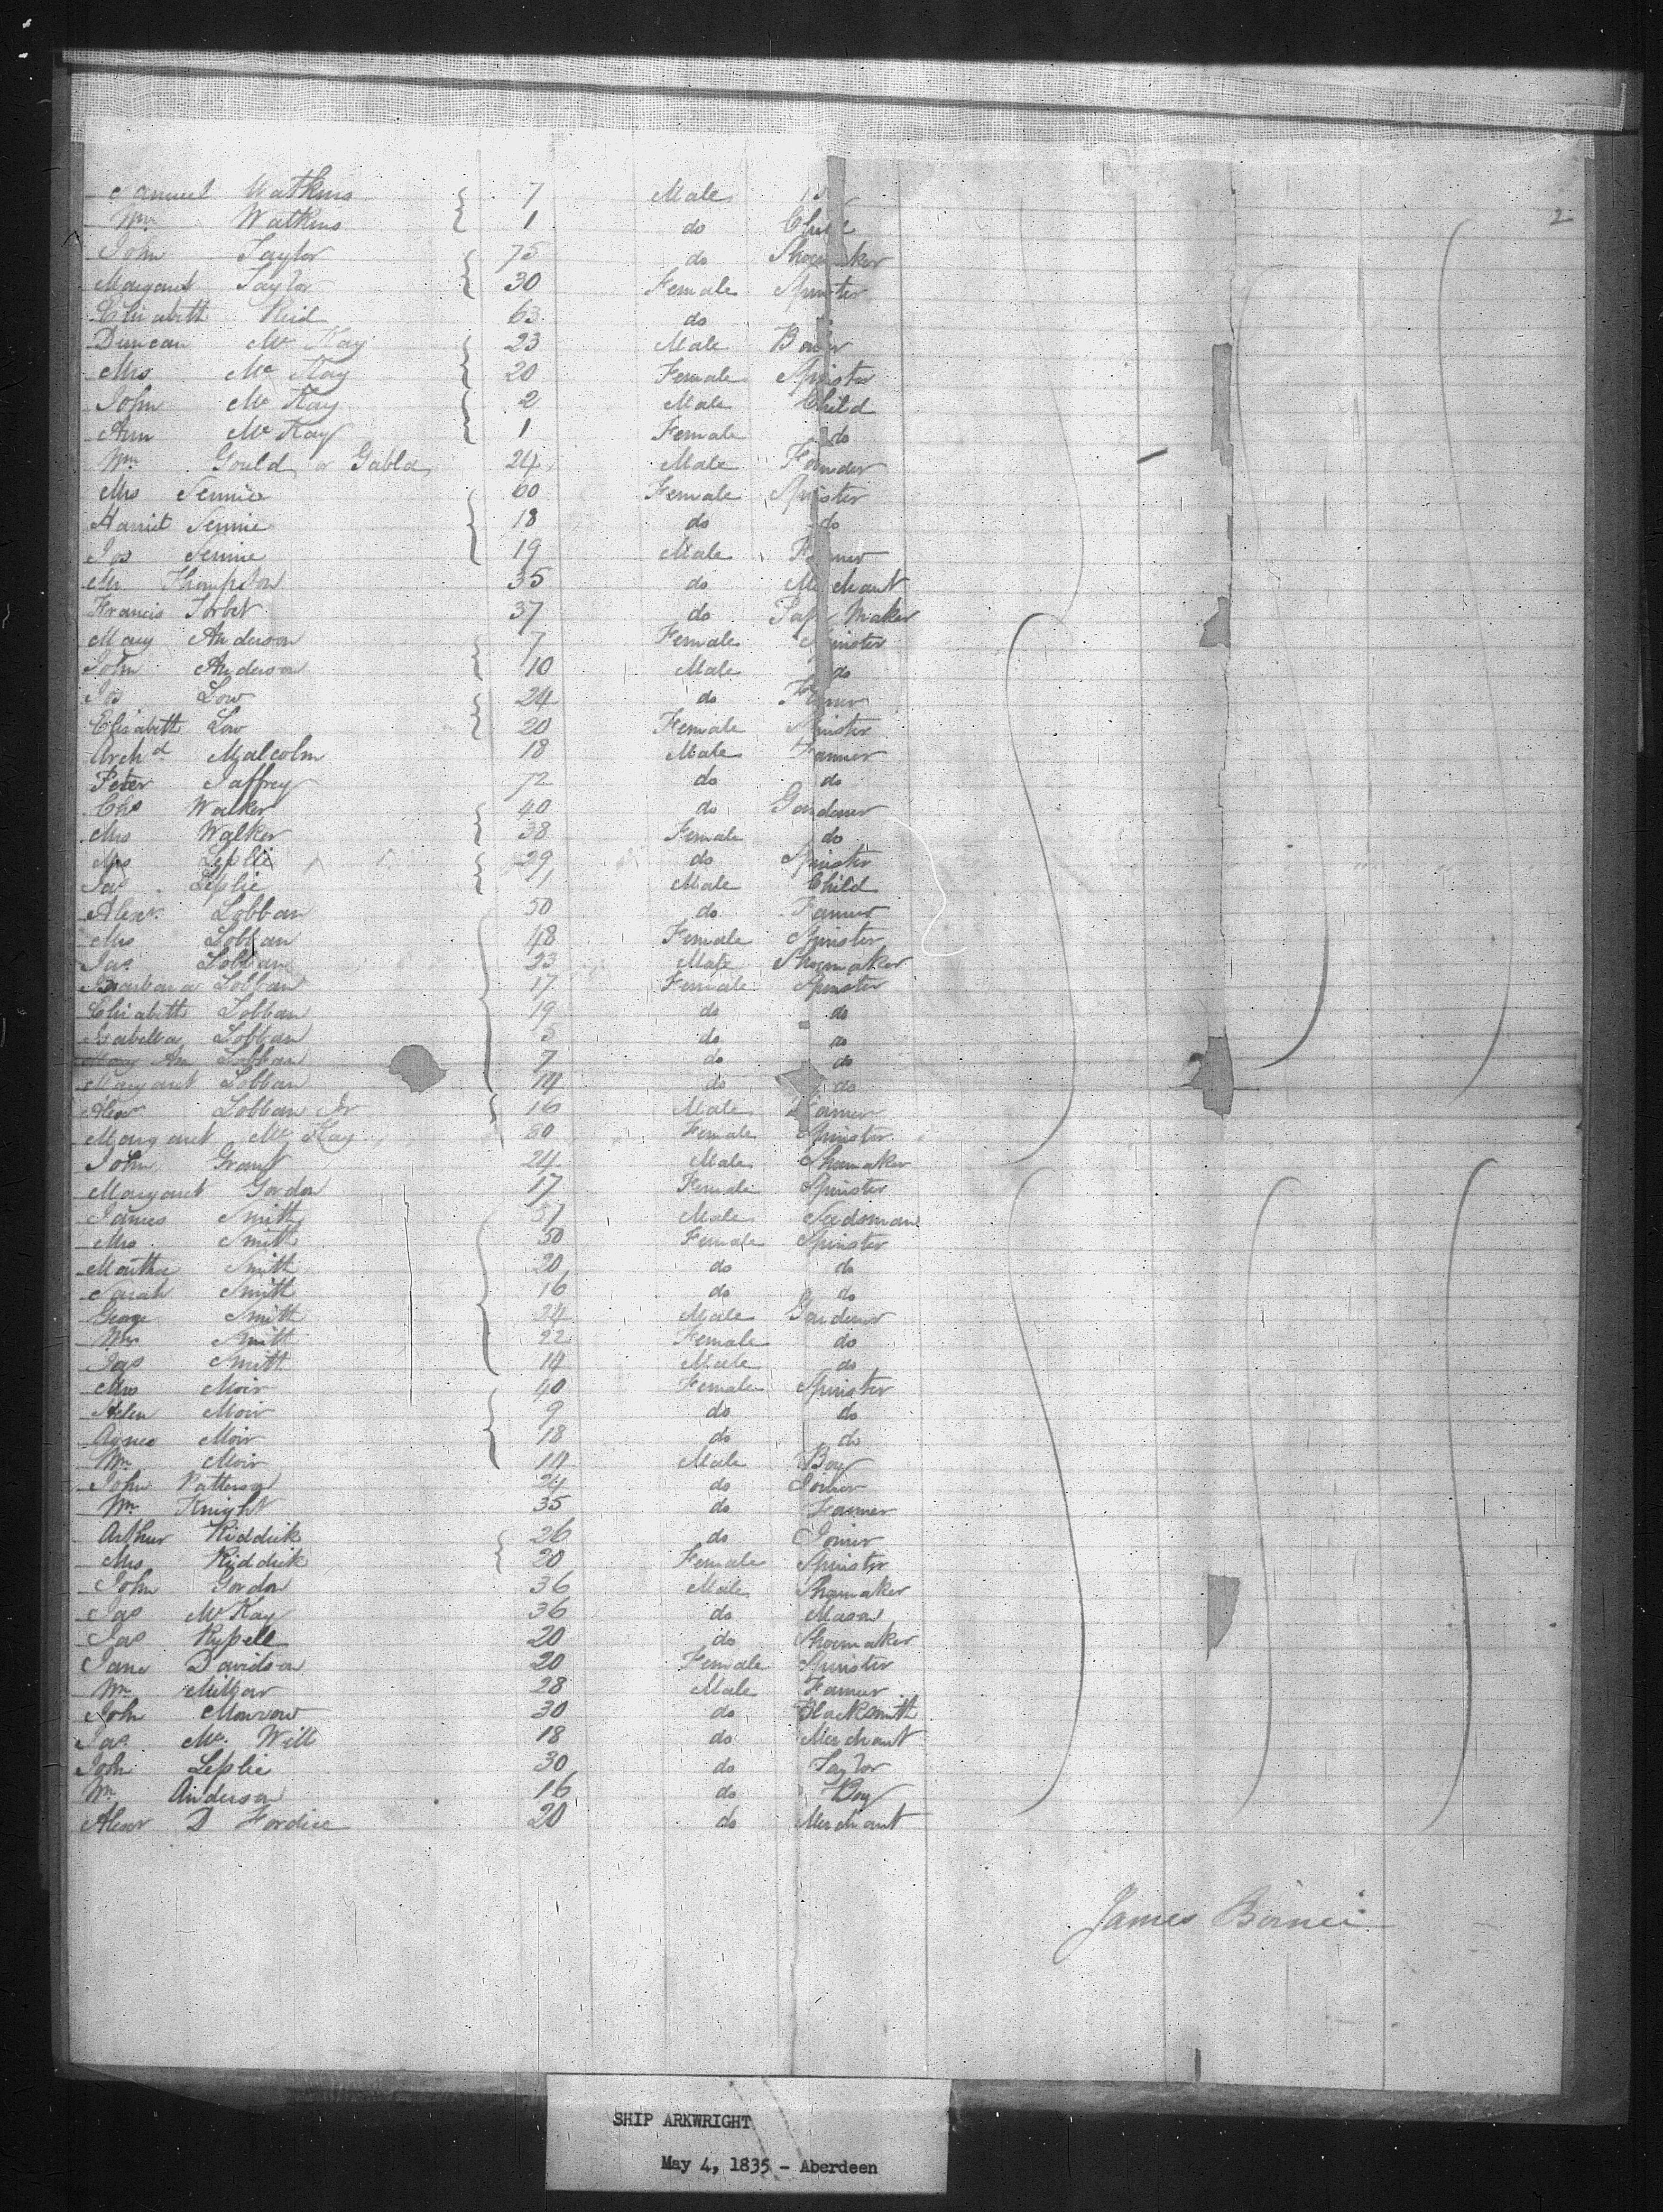 2
Samuel Watkins 7 Male
Wm Watkins 1 do Child
John Taylor 75 do Shoemaker
Margaret Taylor 30 Female Spinster
Elizabeth Reid 63 do
Duncan McKay 23 Male
Mrs McKay 20 Female Spinster
John McKay 2 Male Child
Ann McKay 1 Female do
Wm Gould or Gabld 24 Male
Mrs Rennie 60 Female Spinster
Harriet Rennie 18 do do
Jas Rennie 19 Male Farmer
Mr Thompson 35 do Merchant
Francis Torbet 37 do Paper Maker
Mary Anderson 7 Female Spinster
John Anderson 10 Male do
Jas Low 24 do Farmer
Elizabeth Low 20 Female Spinster
Archd Malcolm 18 Male Farmer
Peter Jaffrey 72 do do
Chs Walker 40 do Gardener
Mrs Walker 38 Female do
Mrs Leslie 29 do Spinster
Jas Leslie 1 Male Child
Alexr Lobban 50 do Farmer
Mrs Lobban 48 Female Spinster
Jas Lobban 23 Male Shoemaker
Barbara Lobban 17 Female Spinster
Elizabeth Lobban 19 do do
Isabella Lobban 5 do do
Mary Ann Lobban 7 do do
Margaret Lobban 14 do do
Alexr Lobban Jr 16 Male Farmer
Margaret McKay Female Spinster
John Grant 24 Male Shoemaker
Margaret Gordon 17 Female Spinster
James Smith 57 Male Seedsman
Mrs Smith 50 Female Spinster
Martha Smith 20 do do
Sarah Smith 16 do do
George Smith 24 Male Gardener
Mrs Smith 22 Female do
Jas Smith 14 Male do
Mrs Moir 40 Female Spinster
Helen Moir 9 do do
Agnes Moir 18 do do
Wm Moir Male Boy
John Patterson 24 do Joiner
Wm Knight 35 do Farmer
Arthur Riddick 26 do Joiner
Mrs Riddick 20 Female Spinster
John Gordon 36 Male Shoemaker
Jas McKay 36 do Mason
Jas Russell 20 do Shoemaker
Jane Davidson 20 Female Spinster
Wm Millar 28 Male Farmer
John Monrow 30 do Blacksmith
Jas Mc Will 18 do Merchant
John Leslie 30 do Taylor
Wm Anderson 16 do Boy
Alexr D Fordice 20 do Merchant
James Birnei
SHIP ARKWRIGHT
May 4, 1835 - Aberdeen